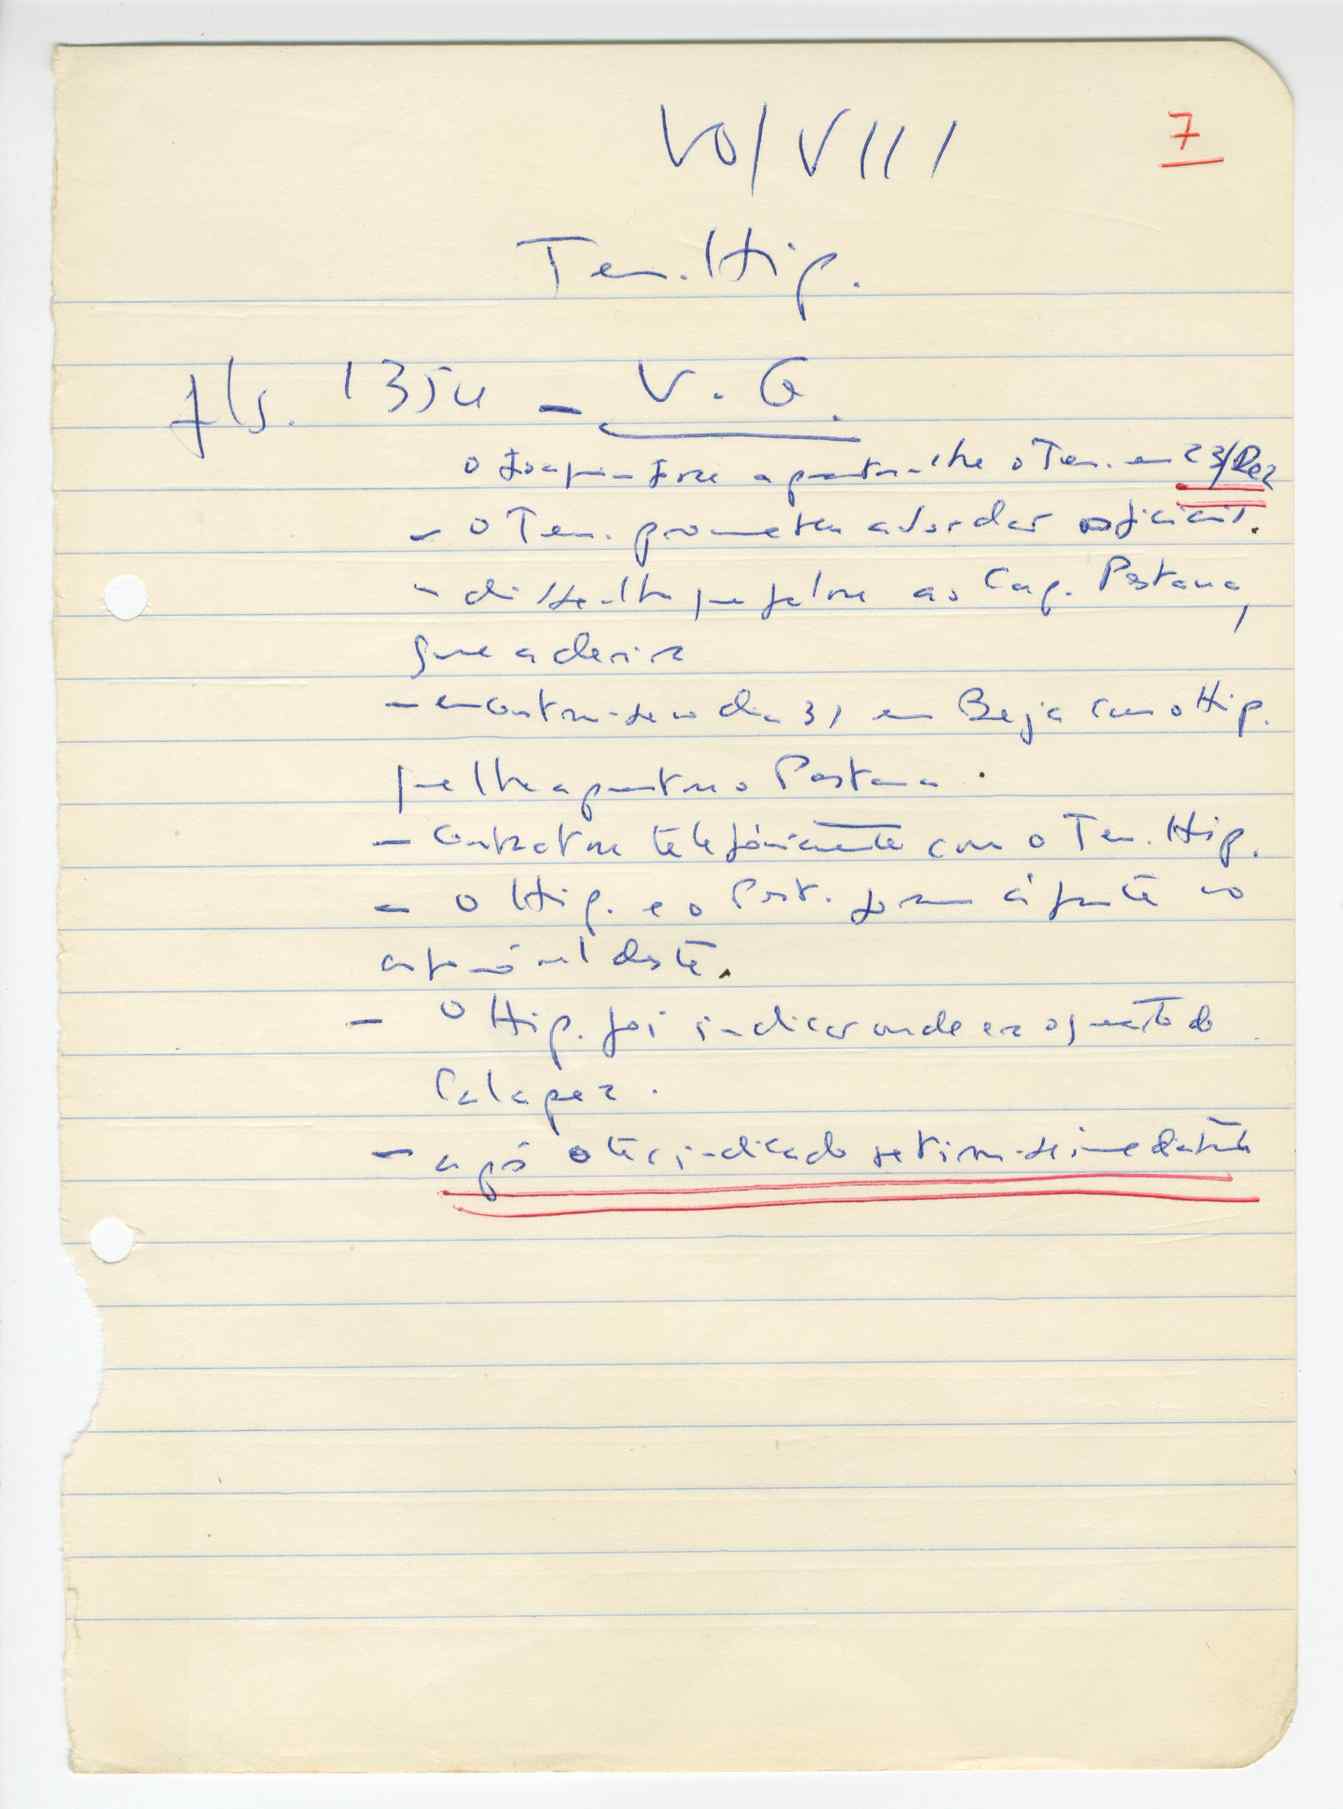 VO/VIII
7
Ten. Hip.
fls. 1354 - V. G.
o apresentou-lhe o Ten. em 23/Dez
- O Ten. prometeu abordar oficiais.
- disse-lhe que falou ao Cap. Pestana,
que aderira
- encontrou-se no dia 31 em Beja com o Hip.
que lhe apresentou o Pestana.
- Contactou telefónicamente com o Ten. Hip.
- O Hip. e o Pest. foram à frente no
automóvel deste.
- O Hip. foi indicar onde era o quarto do
Calapez.
- após o ter indicado retirou-se imediatamente